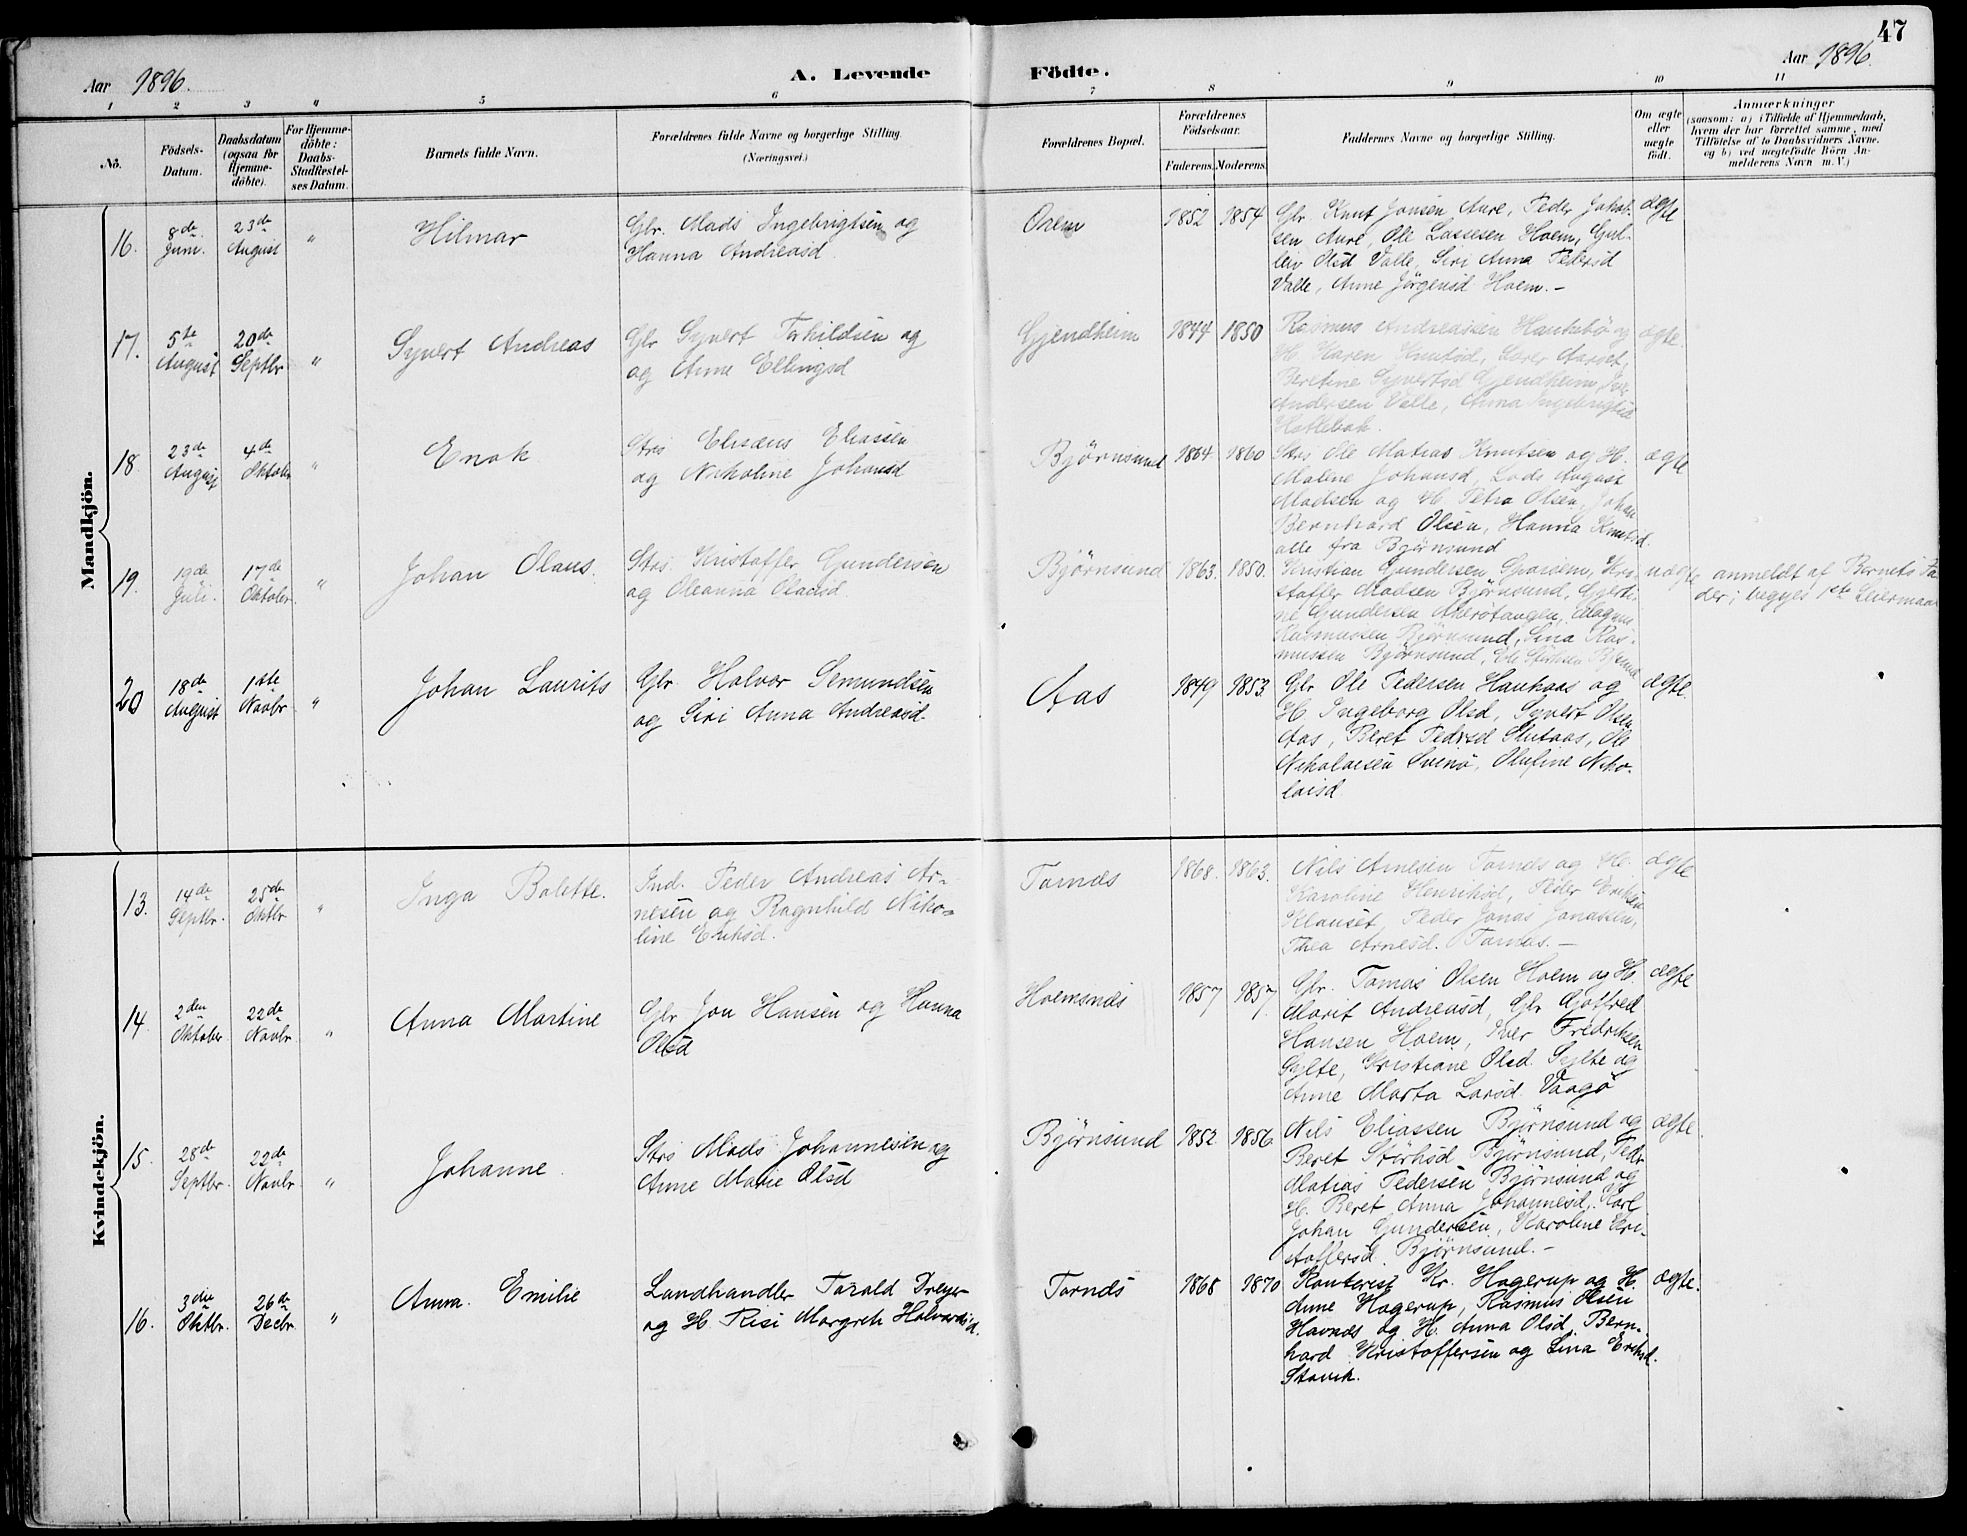 47
Aar 1896.
A. Levende Födte.
Aar 1896.
1 2 3 4 5 6 7 8 9 10 11
No.
Födsels-Datum.
Daabsdatum (ogsaa för Hjemme-döbte).
For Hjemme-döbte: Daabs-Stadfæstel-ses Datum.
Barnets fulde Navn.
Forældrenes fulde Navne og borgerlige Stilling. (Næringsvei.)
Forældrenes Bopæl.
Forældrenes Födselsaar.
Faderens. Moderens.
Faddernes Navne og borgerlige Stilling.
Om ægte eller uægte födt.
Anmærkninger
(saasom: a) i Tilfælde af Hjemmedaab,
hvem der har forrettet samme, med
Tilföielse af to Daabsvidners Navne.
og b) ved uægtefödte Börn An-
melderens Navn m. V.)
Mandkjön.
16.
8de Juni.
23de August
"
Hilmar
Gbr. Mads Ingebrigtsen og
Hanna Andreasd.
1852 1854
Gbr Knut Jonsen Aure, Peder Jakob-
sen Aure, Ole Lassesen Hoem, Gul-
leiv Olsd Valle, Siri Anna Pedersd
Valle, Anne Jörgensd Hoem. –
ægte
17.
5te August
20de Septbr
"
Syvert Andreas
Gbr Syvert Torkildsen og
og Anne Ellingsd
Gjendheim
1844 1850
Rasmus Andreassen Haukebö og
H. Karen Knutsd, Lærer Aarset,
Beretine Syvertsd Gjendheim,
Andersen Valle, Anna Ingebrigtsd
ægte.
18
23de August
4de Oktober
"
Enok
Strs Elisæus Eliassen
og Nikoline Johansd
Björnsund
1864 1860
Strs Ole Matias Knutsen og H.
Malene Johansd, Lods August
Madsen og H. Petra Olsen, Johan
Bernhard Olsen, Hanna Knutsd.
alle fra Björnsund
ægte
19.
19de Juli.
17de Oktober.
"
Johan Olaus.
Strs. Kristoffer Gundersen
og Oleanna Olausd.
Björnsund
1863. 1850.
Kristian Gundersen, Kri-
stoffer Madsen Björnsund,
Gundersen Akerötangen, Magnus
Rasmussen Björnsund, Lina Ras-
mussen Björnsund,
uægte
anmeldt af Barnets Fa-
der; begges 1ste Leiermaal
20
18de August
1ste Novbr
"
Johan Laurits
Gbr Halvor Semundsen
og Siri Anna Andreasd.
Aas
1849 1853.
Gbr Ole Pedersen Haukaas og
H. Ingeborg Olsd, Syvert Olsen
Aas, Beret Pedersd Slutaas, Ole
Nikolaisen Svinö, Olufine Niko-
laisd
ægte.
Kvindekjön.
13.
14de Septbr.
25de Oktbr
"
Inga Bolette.
Ind. Peder Andreas Ar-
nesen og Ragnhild Niko-
line Eriksd.
Tornes
1868. 1863.
Nils Arnesen Tornes og H.
Karoline Henriksd, Peder Eriksen
Klauset, Peder Jonas Jonassen,
Thea Arnesd. Tornes. –
ægte
14.
2den Oktober
22de Novbr.
"
Anna Martine
Gbr Jon Hansen og Hanna
Olsd
Hoemsnes
1857 1857.
Gbr. Tomas Olsen Hoem og H.
Marit Andreasd, Gbr Gotfred
Hansen Hoem, Iver Fredriksen
Sylte, Kristiane Olsd. Sylte og
Anne Marta Larsd. Vaagö
ægte
15.
28de Septbr.
22de Novbr
"
Johanne.
Strs Mads Johannesen og
Anne Marie Olsd
Björnsund
1852 1856.
Nils Eliassen Björnsund og
Beret Störksd Björnsund, Peder
Matias Pedersen Björnsund og
H. Beret Anna Johannesd, Karl
Johan Gundersen, Karoline Kri-
stoffersd. Björnsund. –
ægte.
16.
3die Oktbr.
26de Decbr
"
Anna Emilie
Landhandler Torald Dreyer
og H. Risi Margrete Halvorsd.
Tornes
1868 1870
Kontorist Kr. Hagerup og H.
Anne Hagerup, Rasmus Olsen
Havnes og H. Anna Olsd, Bern-
hard Kristoffersen og Lina Eriksd.
Stavik.
ægte.